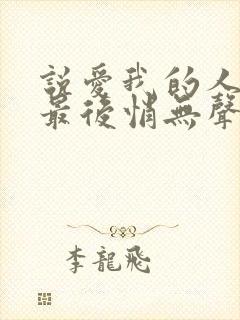 説愛我的人
最後悄無聲
李龍飛